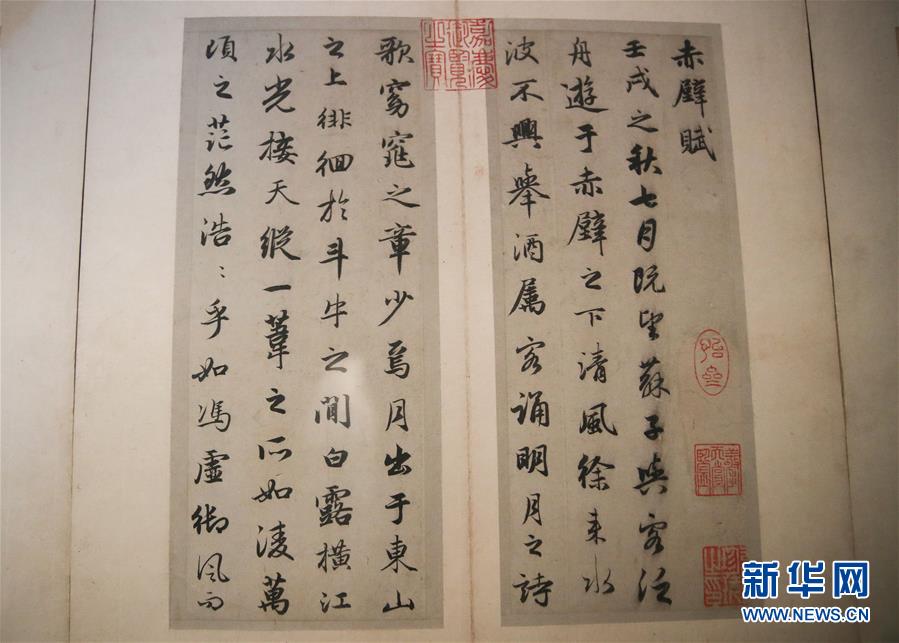 赤壁賦
壬戌之秋七月既望蘇子與客泛
舟遊于赤壁之下清風徐来水
波不興舉酒属客誦明月之詩
嘉慶御覽之寶
歌窈窕之章少焉月出于東山
之上徘徊於斗牛之間白露橫江
水光接天縱一葦之所如凌萬
頃之茫然浩〻乎如馮虛御風而
新华网
WWW.NEWS.CN